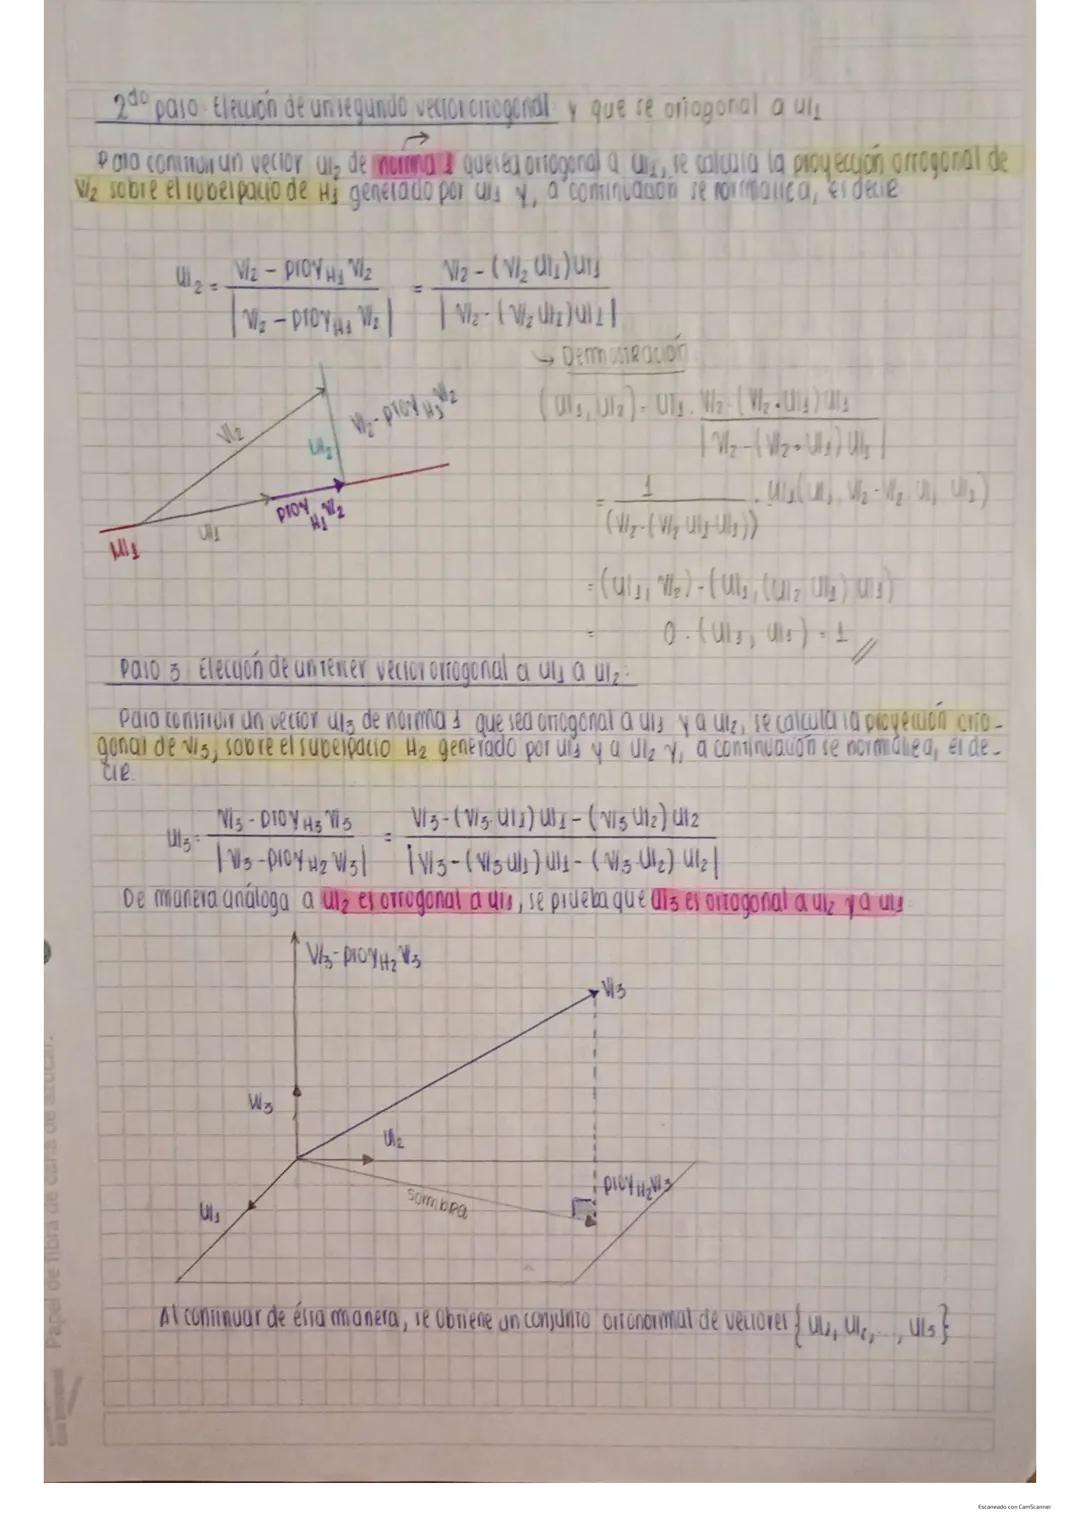 2do paso: Elección de un segundo vector ortogonal y que se ortogonal a u1
Para construir un vector u2 de norma 1 que sea ortogonal a u1, se calcula la proyección orrogonal de
v2 sobre el subespacio de H1 generado por u1 y, a continuación se normaliza, es decir
u2 = v2 - proyH1 v2 / |v2 - proyH1 v2| = v2 - (v2 u1)u1 / |v2 - (v2 u1)u1|
→ Demostración
(u1, u2) = u1 · v2 - (v2 • u1)u1 / |v2 - (v2 • u1)u1|
v2
v2 - proyH1 v2
u2
proyH1 v2
u1
= (u1, v2) - (u1, (u2 u1) u1)
0 · (u1, u1) = 1 //
Paso 3: Elección de un tercer vector ortogonal a u1 a u2:
Para construir un vector u3 de norma 1 que sea ortogonal a u1 y a u2, se calcula la proyección orto-
gonal de v3, sobre el subespacio H2 generado por u1 y a u2 y, a continuación se normaliza, es de-
cir.
u3 = v3 - proyH3 v3 / |v3 - proyH2 v3| = v3 - (v3 u1) u1 - (v3 u2) u2 / |v3 - (v3 u1) u1 - (v3 u2) u2|
De manera análoga a u2 es ortogonal a u1, se prueba que u3 es ortogonal a u2 y a u1
v3 - proyH2 v3
v3
u2
proyH2 v3
sombra
u1
Al continuar de ésta manera, se obtiene un conjunto ortonormal de vectores {u1, u2, ..., u3}
Papel de fibra de caña de azúcar.
Escaneado con CamScanner